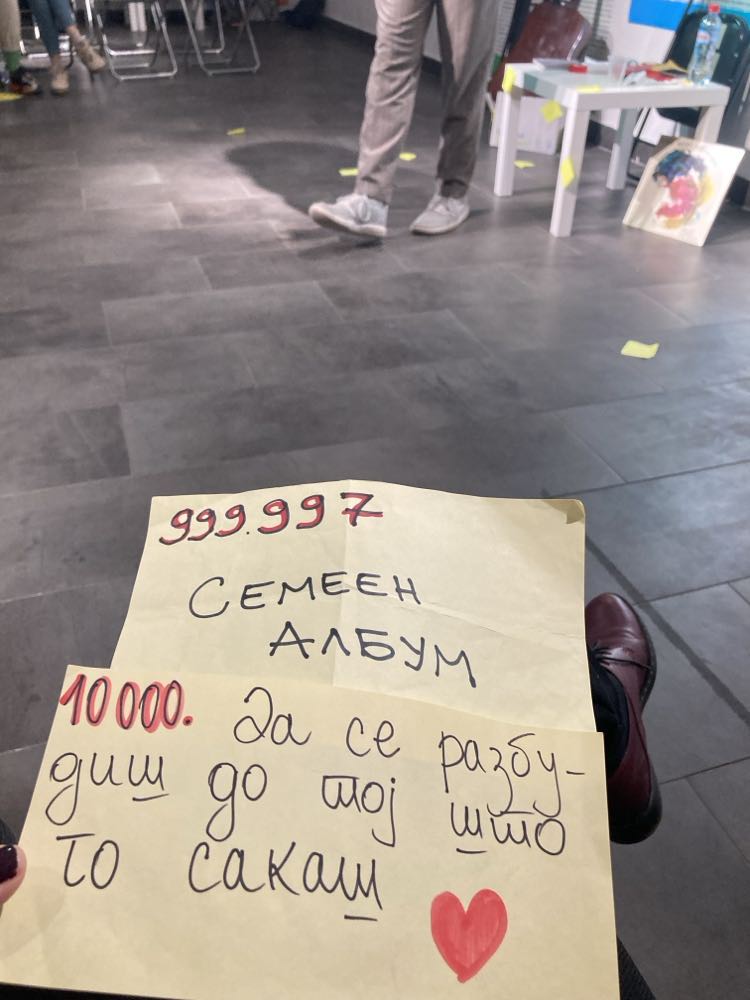 999.997
СЕМЕЕН
АЛБУМ
10000. Да се разбу-
диш до тој што
го сакаш